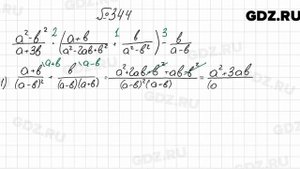 GDZ.RU
№344
(a²-b²)/(a+3b) · ( (a+b)/(a²-2ab+b²) + b/(a²-b²) ) - b/(a-b)
2 1 3
1) (a+b)/(a-b)² + b/((a-b)(a+b)) = (a²+2ab+b²+ab-b²)/((a-b)²(a+b)) = (a²+3ab)/(a
\a+b \a-b
GDZ.RU